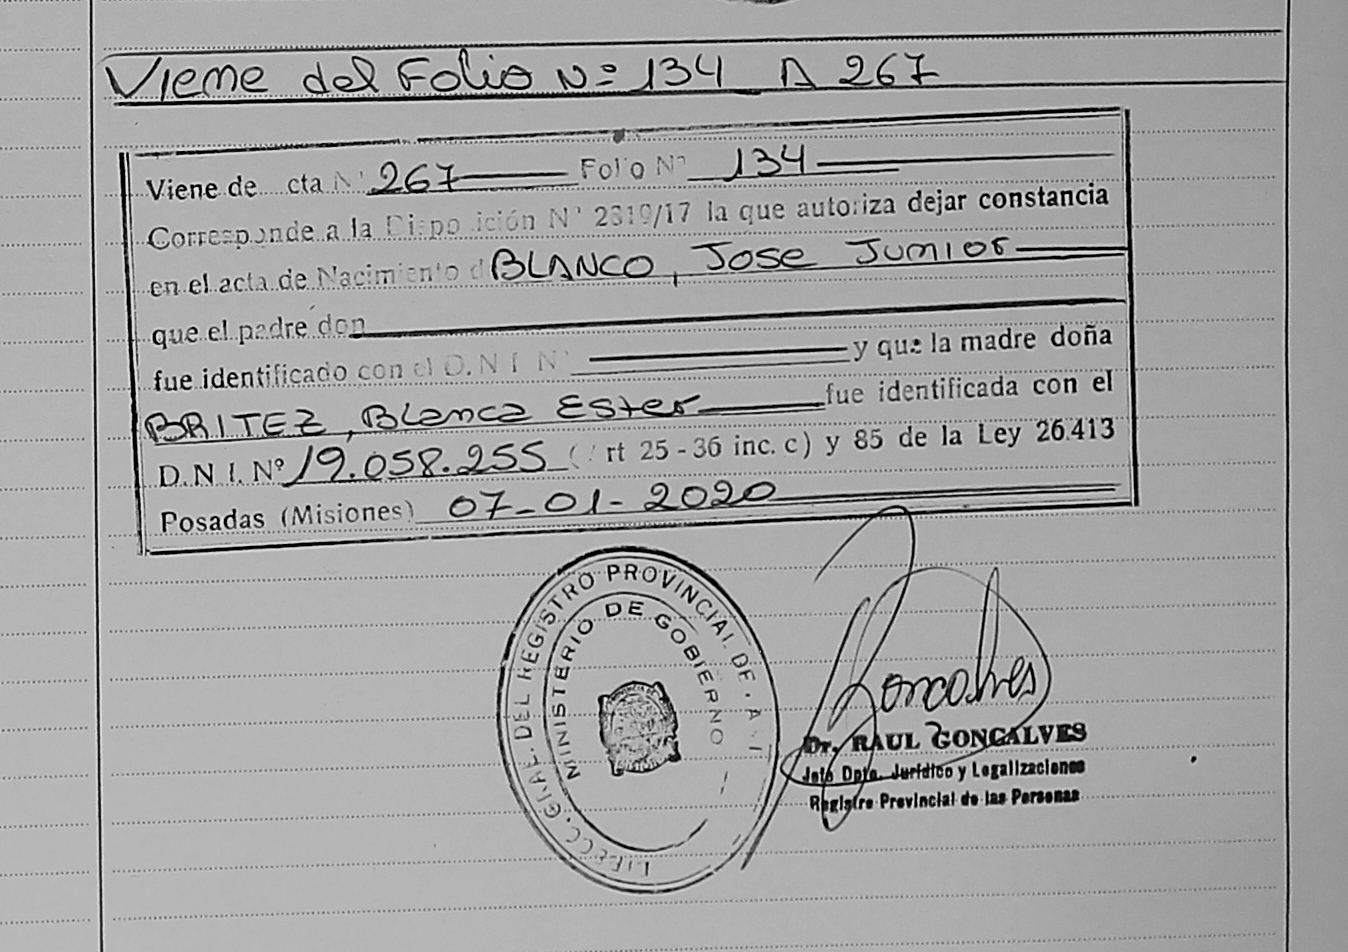 Viene del Folio Nº 134 A 267
Viene de cta Nº 267 Folio Nº 134
Corresponde a la Dispo ición Nº 2319/17 la que autoriza dejar constancia
en el acta de Nacimiento d BLANCO, Jose Junior
que el padre don
fue identificado con el D.N I Nº y que la madre doña
BRITEZ, Blanca Ester fue identificada con el
D.N.I. Nº 19.058.255 ( rt 25 - 36 inc. c) y 85 de la Ley 26.413
Posadas (Misiones) 07-01-2020
GRAL. DEL REGISTRO PROVINCIAL DE
MINISTERIO DE GOBIERNO
Goncalves
Dr. RAUL GONCALVES
Jefe Dpto. Jurídico y Legalizaciones
Registro Provincial de las Personas